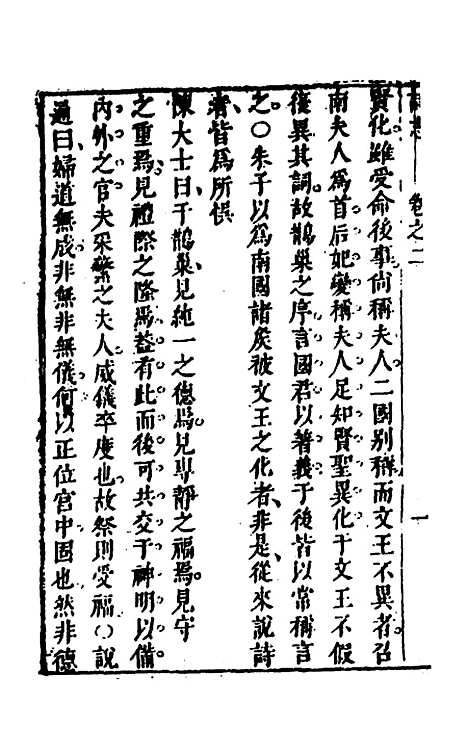 卷之二
一
賢化雖受命後事尚稱夫人二國别稱而文王不異者召
南夫人爲首后妃變稱夫人足知賢聖異化于文王不假
復異其詞故鵲巢之序言國君以著義于後皆以常稱言
之〇朱子以爲南國諸矦被文王之化者非是從來說詩
者皆爲所悞
陳大士曰于鵲巢見純一之德焉見專靜之福焉見守
之重焉見禮際之隆焉益有此而後可共交于神明以備
内外之官夫采蘩之夫人威儀卒度也故祭則受福〇說
通曰婦道無成非無非無儀何以正位宫中固也然非德